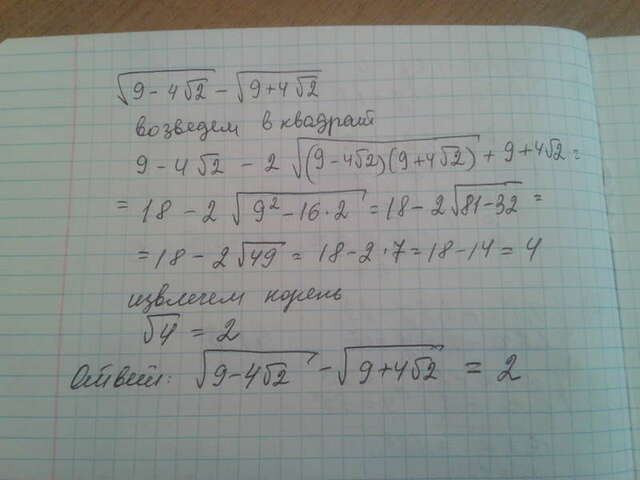 √(9-4√2) - √(9+4√2)
возведем в квадрат
9-4√2 - 2√((9-4√2)(9+4√2)) + 9+4√2 =
= 18-2√(9²-16·2) = 18-2√(81-32) =
= 18-2√49 = 18-2·7 = 18-14 = 4
извлечем корень
√4 = 2
Ответ: √(9-4√2) - √(9+4√2) = 2